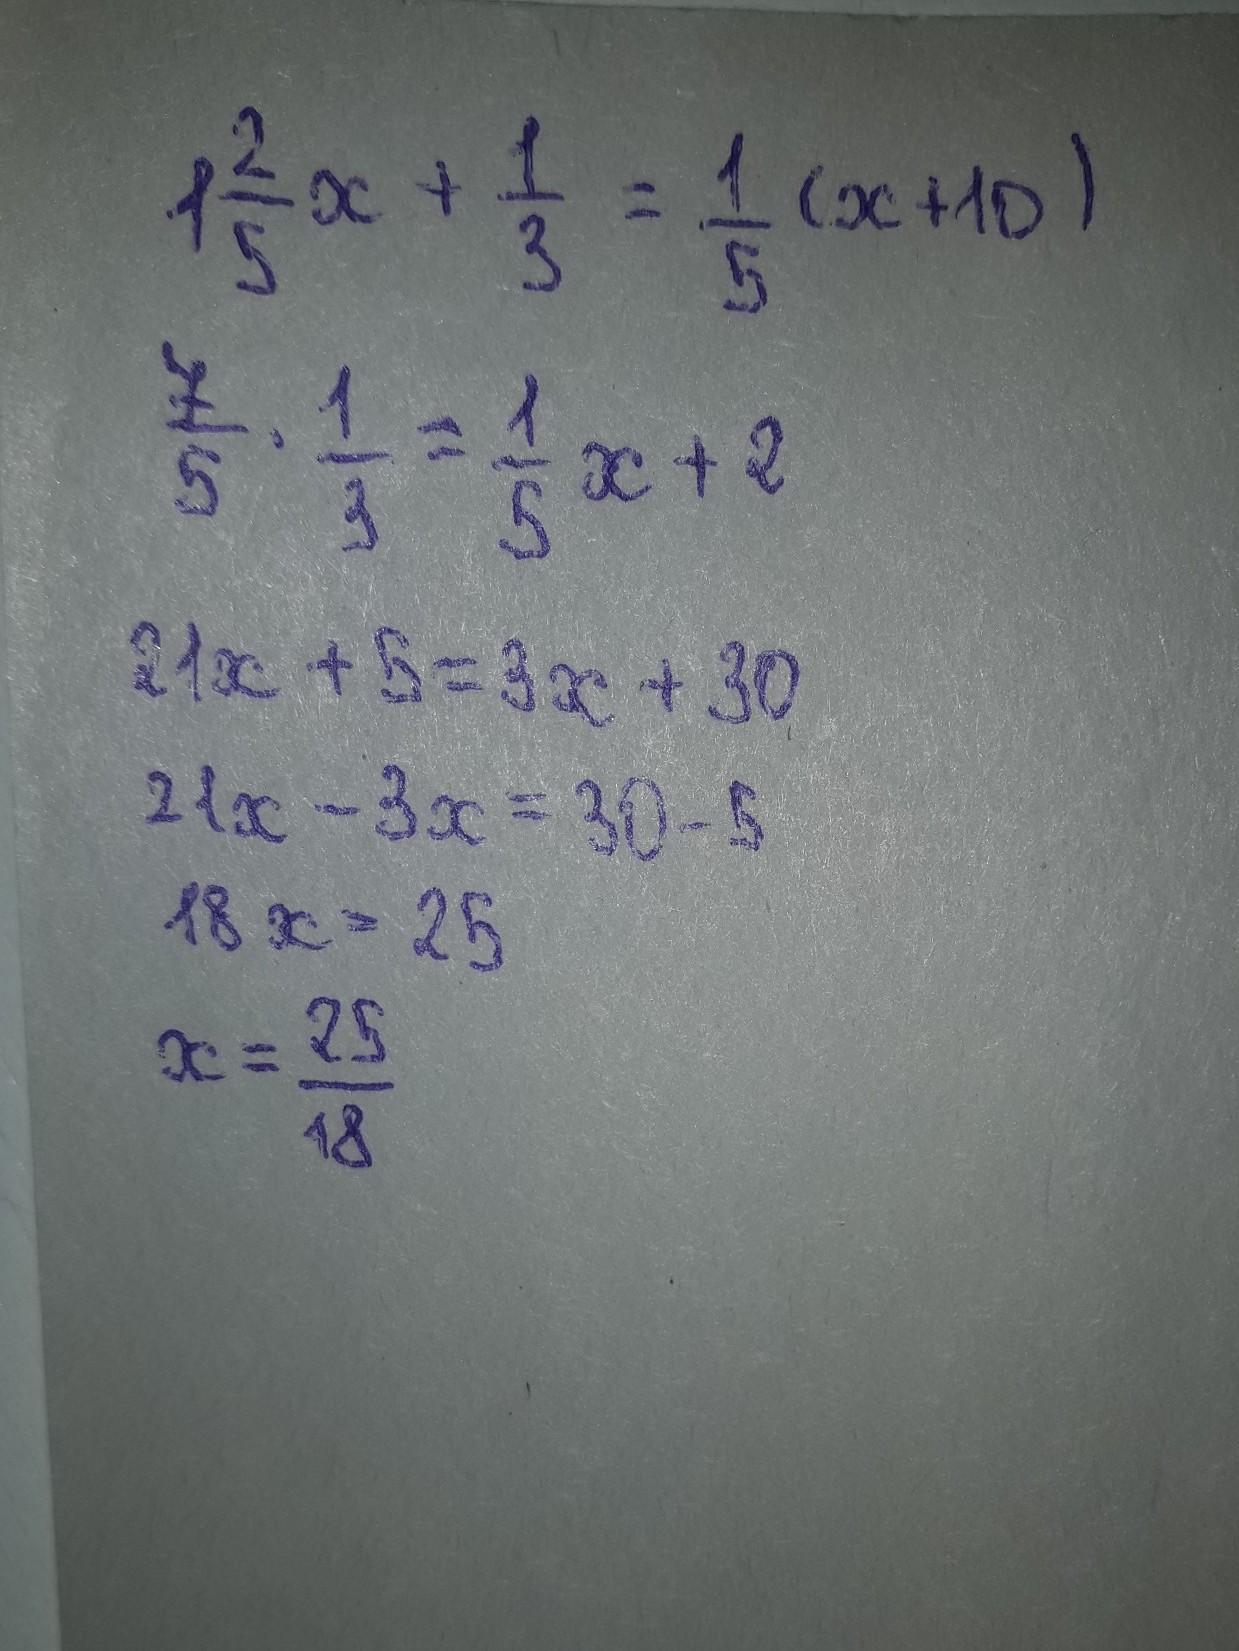 1 2/5 x + 1/3 = 1/5 (x+10)
7/5 · 1/3 = 1/5 x + 2
21x + 5 = 3x + 30
21x - 3x = 30 - 5
18x = 25
x = 25/18